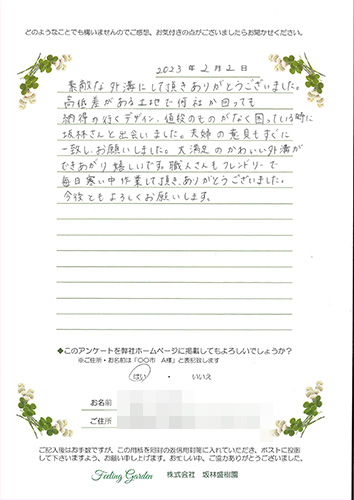 どのようなことでも構いませんのでご感想、お気付きの点がございましたらお聞かせください。
2023年2月2日
素敵な外溝にして頂きありがとうございました。
高低差がある土地で何社か回っても
納得の行くデザイン、値段のものがなく困っている時に
坂林さんと出会いました。夫婦の意見もすぐに
一致し、お願いしました。大満足のかわいい外溝が
できあがり嬉しいです。職人さんもフレンドリーで
毎日寒い中作業して頂き、ありがとうございました。
今後ともよろしくお願いします。
◆このアンケートを弊社ホームページに掲載してもよろしいでしょうか?
※ご住所・お名前は「〇〇市 A様」と表記致します
はい ・ いいえ
お名前
ご住所
ご記入後はお手数ですが、この用紙を同封の返信用封筒に入れていただき、ポストに投函
して下さいますよう、お願い申し上げます。お忙しい中、ご協力ありがとうございました。
Feeling Garden 株式会社 坂林盛樹園